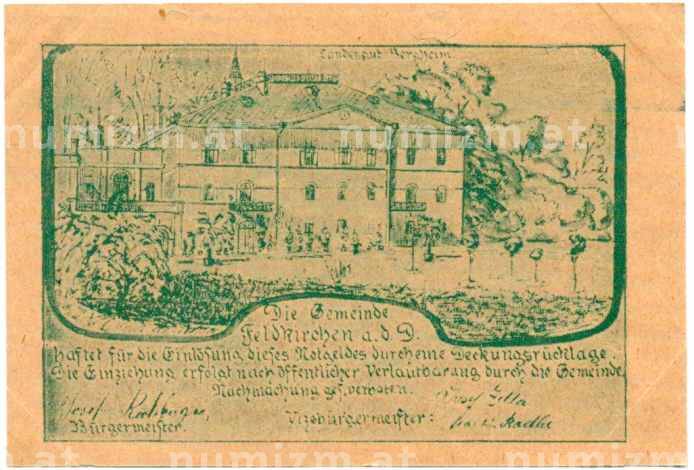 Landesgut Bergheim
numizm.at numizm.at numizm.at
Die Gemeinde
Feldkirchen a. d. D.
haftet für die Einlösung dieses Notgeldes durch eine Deckungsrücklage.
Die Einziehung erfolgt nach öffentlicher Verlautbarung durch die Gemeinde.
Nachmachung ges. verboten.
Josef
Josef
Bürgermeister.
Vizebürgermeister:
numizm.at numizm.at numizm.at